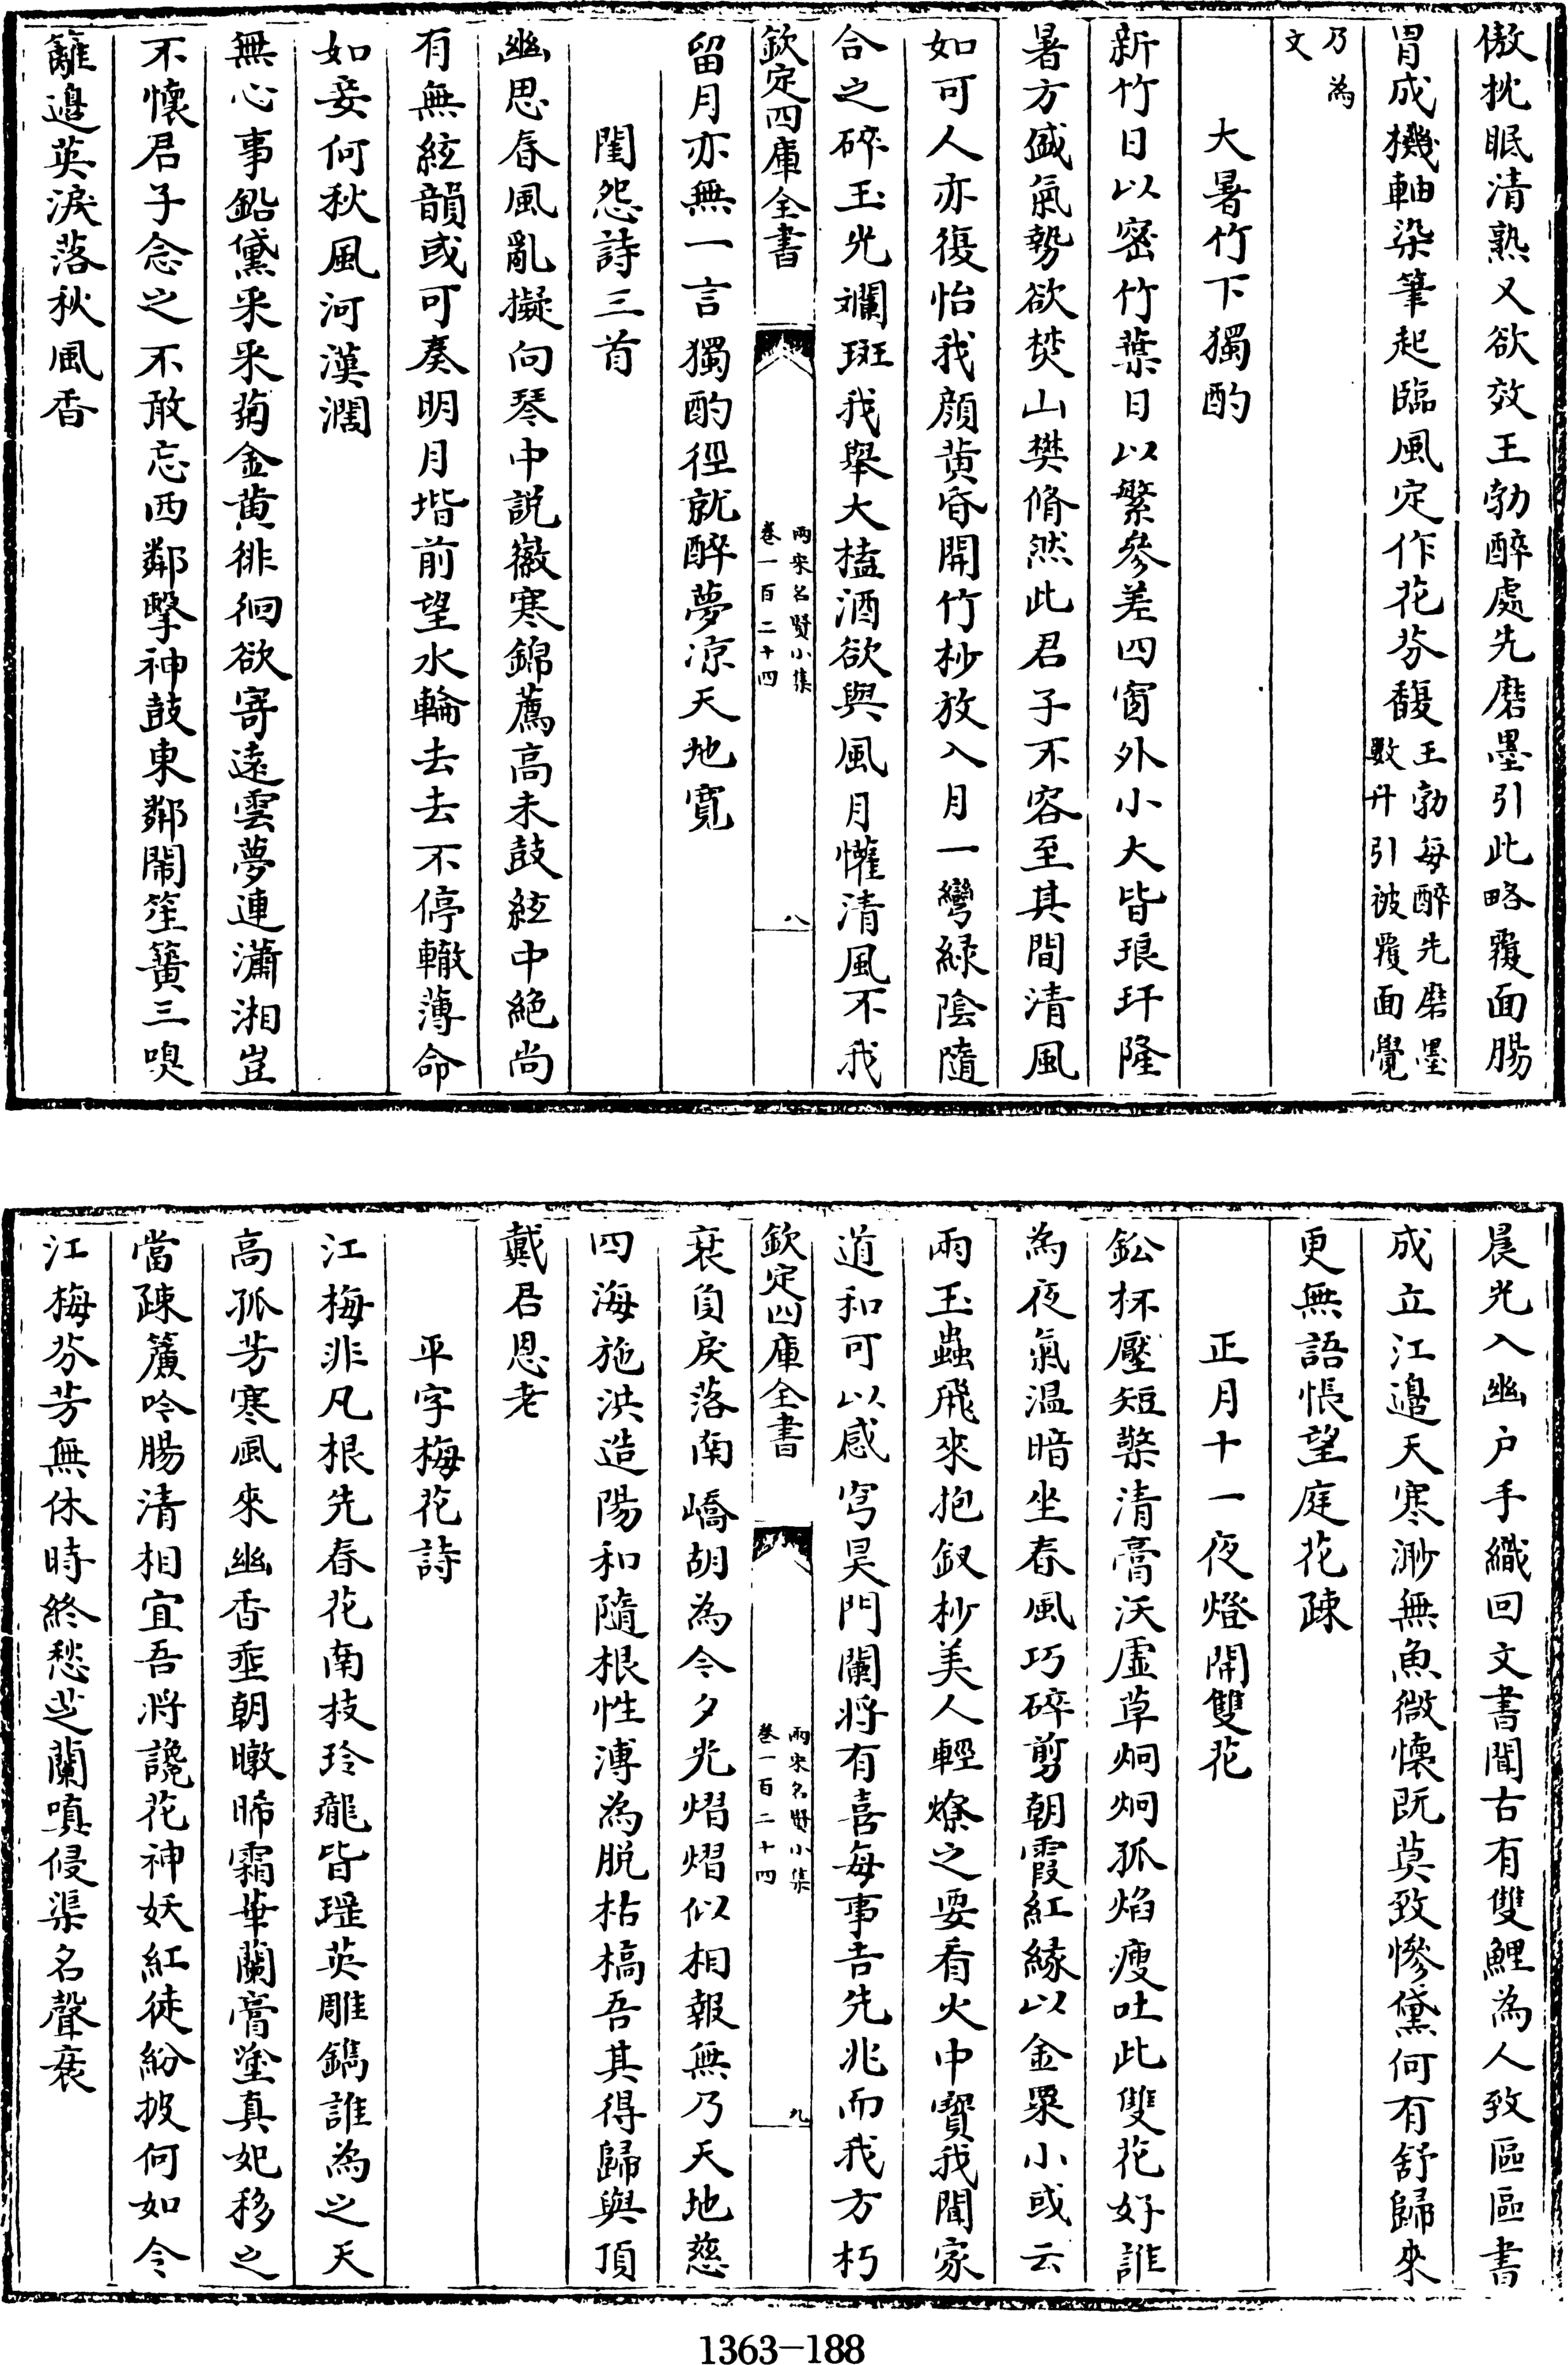 傲枕眠清熟又欲效王勃醉處先磨墨引此略覆面腸
胃成機軸染筆起臨風定作花芬馥王勃每醉先磨墨數升引被覆面覺
乃為文
大暑竹下獨酌
新竹日以密竹葉日以繁參差四窗外小大皆琅玕隆
暑方盛氣勢欲焚山樊翛然此君子不容至其間清風
如可人亦復怡我顔黄昏開竹杪放入月一彎緑陰隨
合之碎玉光斕斑我舉大榼酒欲與風月懽清風不我
欽定四庫全書
兩宋名賢小集
卷一百二十四
八
留月亦無一言獨酌徑就醉夢凉天地寛
閨怨詩三首
幽思春風亂擬向琴中説徽寒錦薦高未鼓絃中絶尚
有無絃韻或可奏明月堦前望水輪去去不停轍薄命
如妾何秋風河漢濶
無心事鉛黛采采菊金黄徘徊欲寄遠雲夢連瀟湘豈
不懷君子念之不敢忘西鄰擊神鼓東鄰閙笙簧三嗅
籬邉英淚落秋風香
晨光入幽户手織回文書聞古有雙鯉為人致區區書
成立江邉天寒渺無魚微懷既莫致慘黛何有舒歸來
更無語悵望庭花疎
正月十一夜燈開雙花
鈆杯壓短檠清膏沃虚草炯炯孤焰瘦吐此雙花好誰
為夜氣温暗坐春風巧碎剪朝霞紅縁以金粟小或云
兩玉蟲飛來抱釵杪美人輕燎之要看火中寳我聞家
道和可以感穹昊門闌將有喜每事吉先兆而我方朽
欽定四庫全書
兩宋名賢小集
卷一百二十四
九
衰負戾落南嶠胡為今夕光熠熠似相報無乃天地慈
四海施洪造陽和隨根性溥為脱枯槁吾其得歸與頂
戴君恩老
平字梅花詩
江梅非凡根先春花南枝玲瓏皆瑶英雕鐫誰為之天
高孤芳寒風來幽香垂朝暾晞霜華蘭膏塗真妃移之
當疎簾吟腸清相宜吾將讒花神妖紅徒紛披何如令
江梅芬芳無休時終愁芝蘭嗔侵渠名聲衰
1363-188